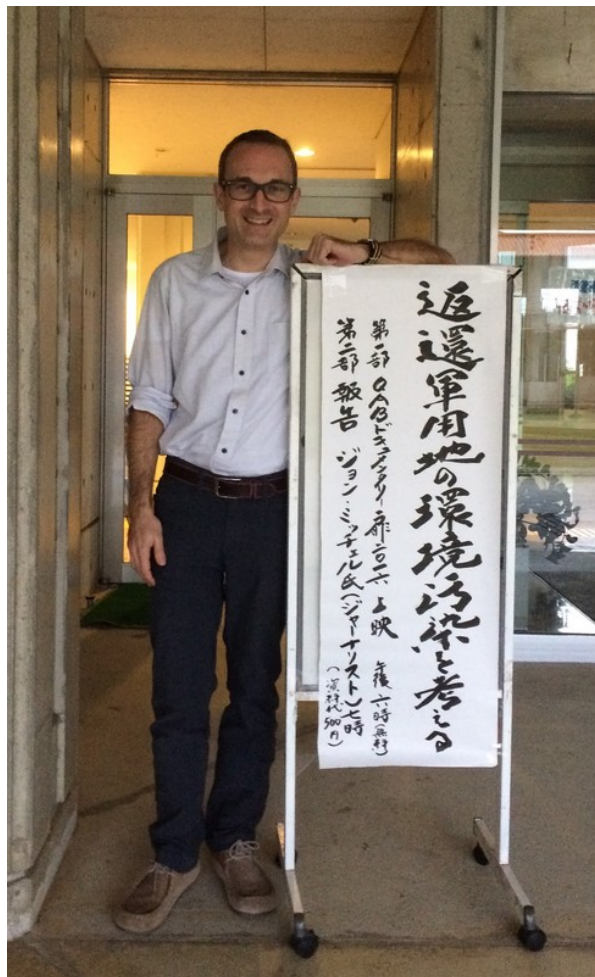 返還軍用地の環境汚染を考える
第一部 QABドキュメンタリー 扉2016上映 午後六時(無料)
第二部 報告 ジョン・ミッチェル氏(ジャーナリスト)七時
(資料代500円)